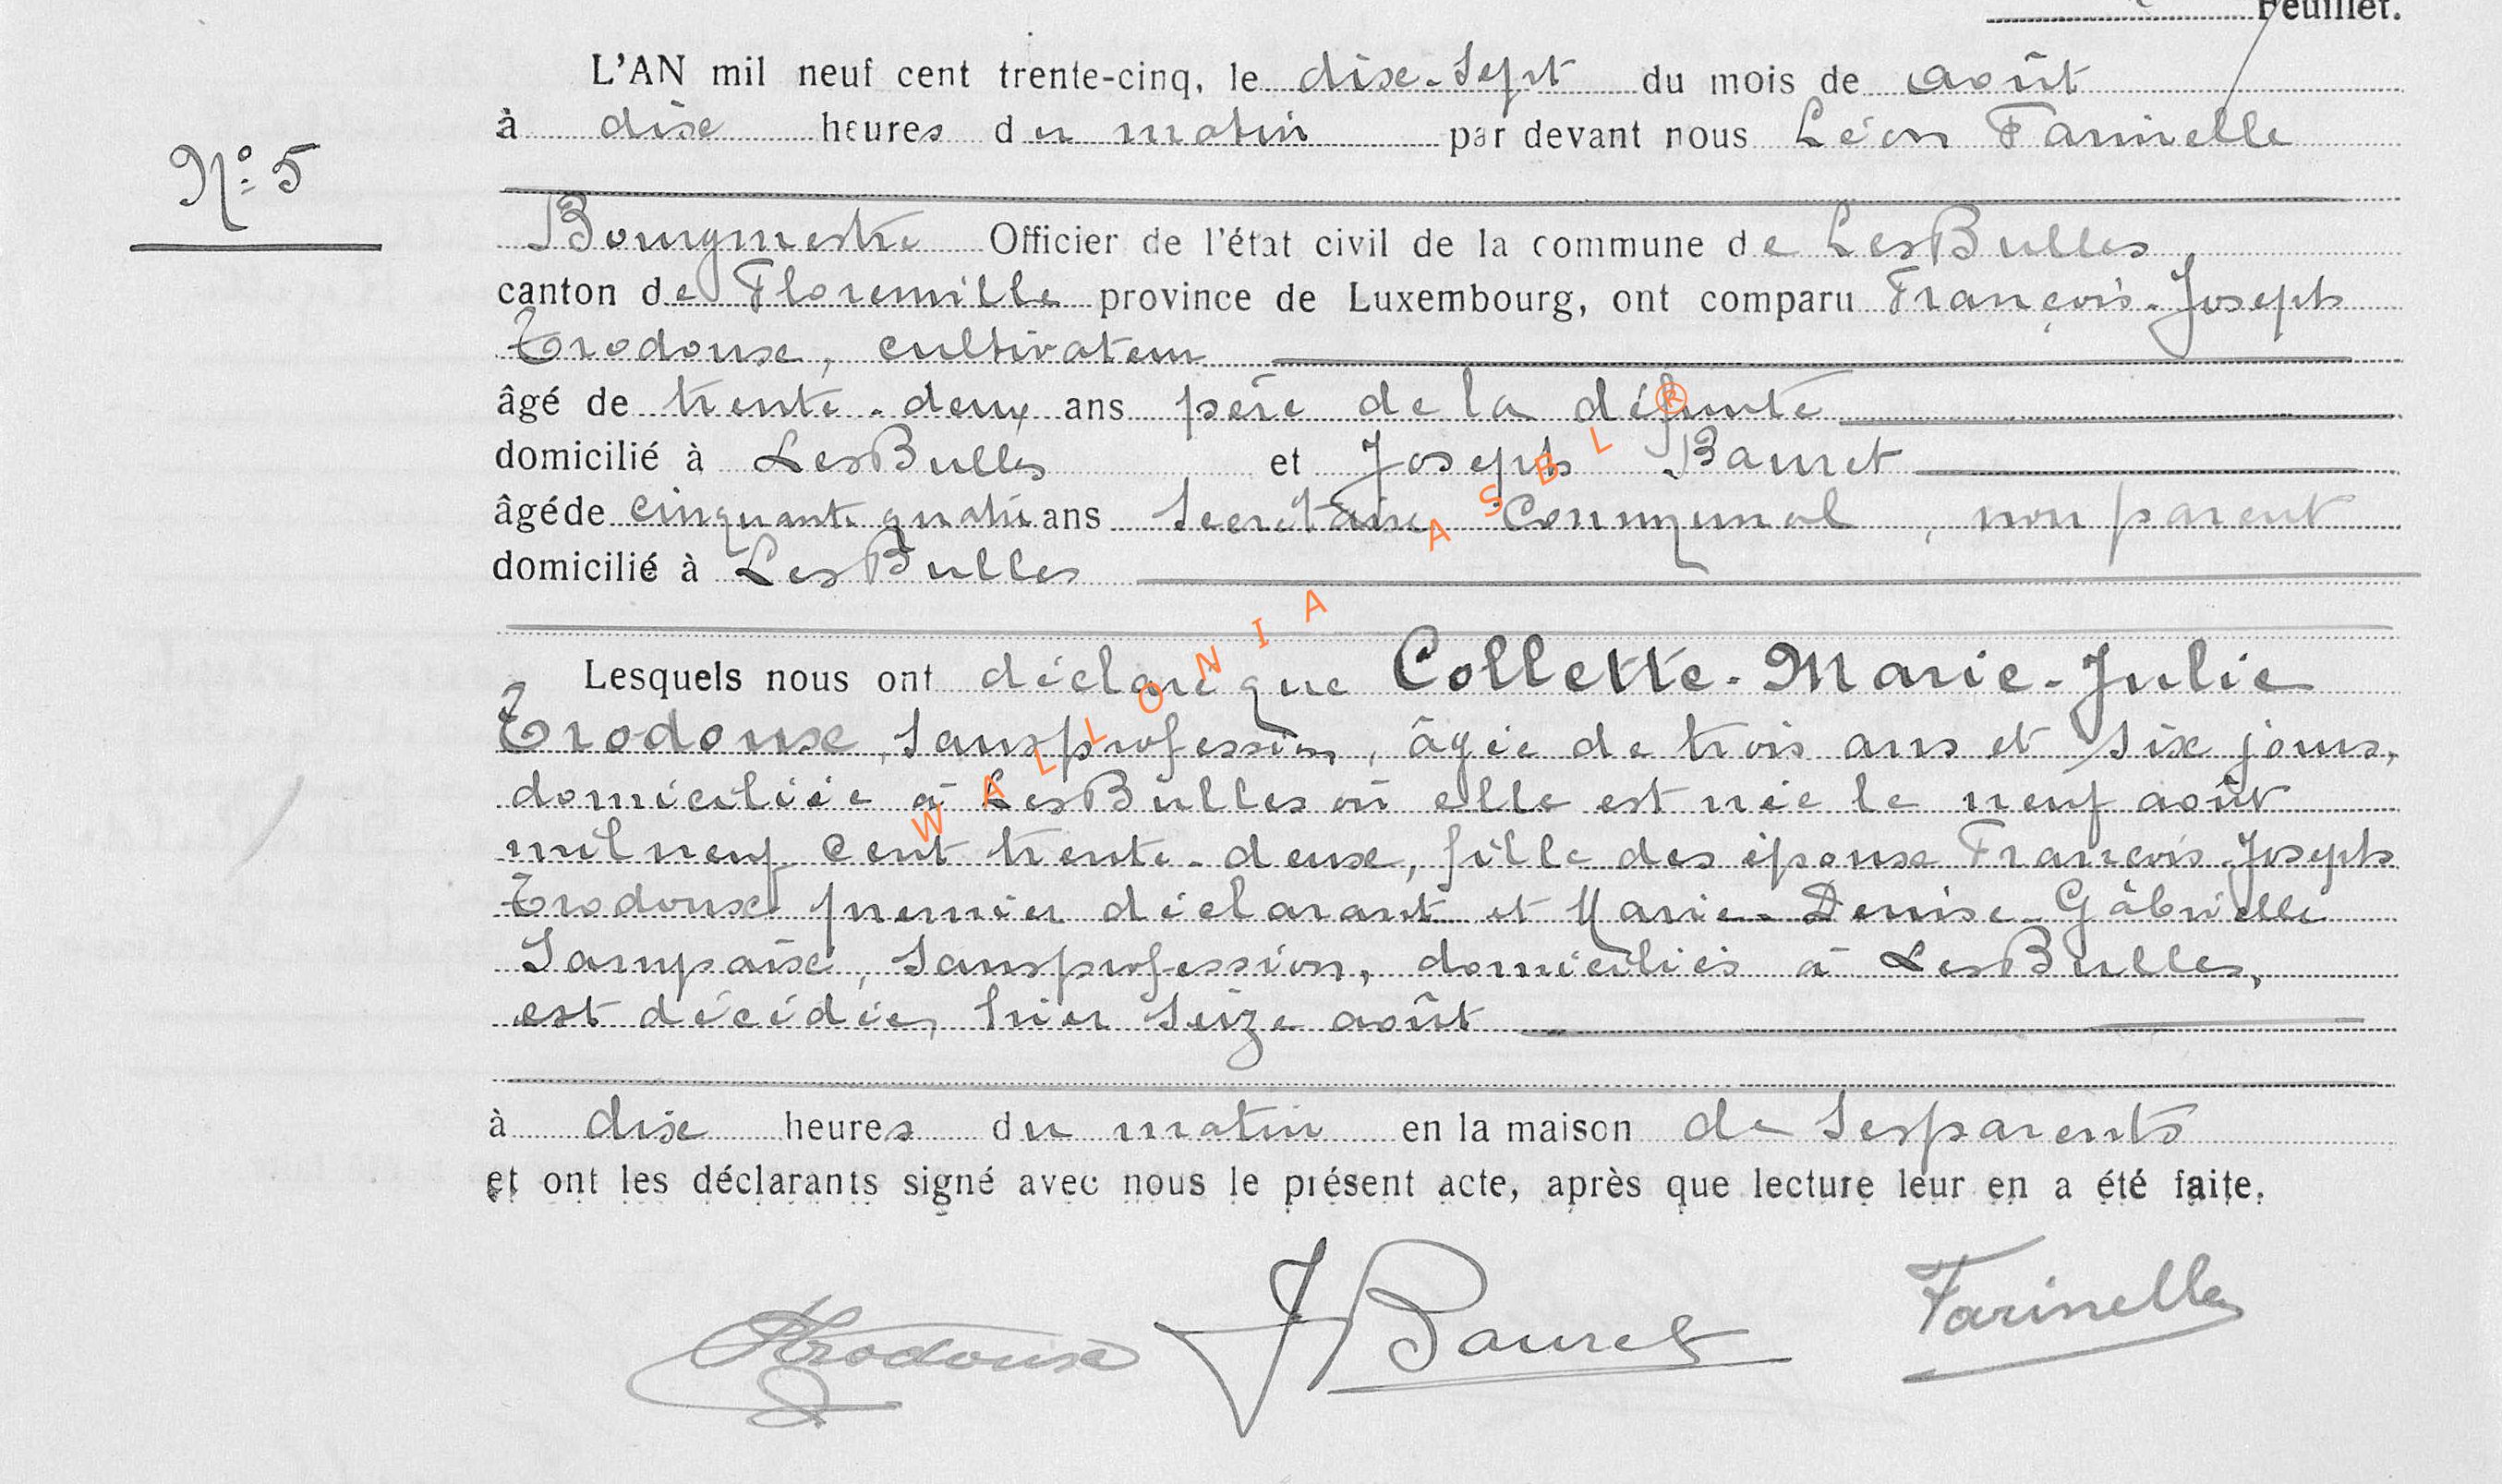 Feuillet.
L'AN mil neuf cent trente-cinq, le dix-sept du mois de août
à dix heures du matin par devant nous Léon Farinelle
N° 5
Bourgmestre Officier de l'état civil de la commune de LesBulles
canton de Florenville province de Luxembourg, ont comparu François-Joseph
Trodoux, cultivateur
âgé de trente-deux ans père de la défunte
domicilié à LesBulles et Joseph Bauret
âgé de cinquante quatre ans secrétaire communal, non parent
domicilié à LesBulles
Lesquels nous ont déclaré que Collette-Marie-Julie
Trodoux, sans profession, âgée de trois ans et six jours,
domiciliée à LesBulles où elle est née le neuf août
mil neuf cent trente-deux, fille des époux François-Joseph
Trodoux premier déclarant et Marie-Denise-Gâbrielle
Lampaix, sans profession, domiciliés à LesBulles,
est décédée, hier seize août
à dix heures du matin en la maison de ses parents
et ont les déclarants signé avec nous le présent acte, après que lecture leur en a été faite.
Trodoux JBauret Farinelle
WALLONIA ASBL ®